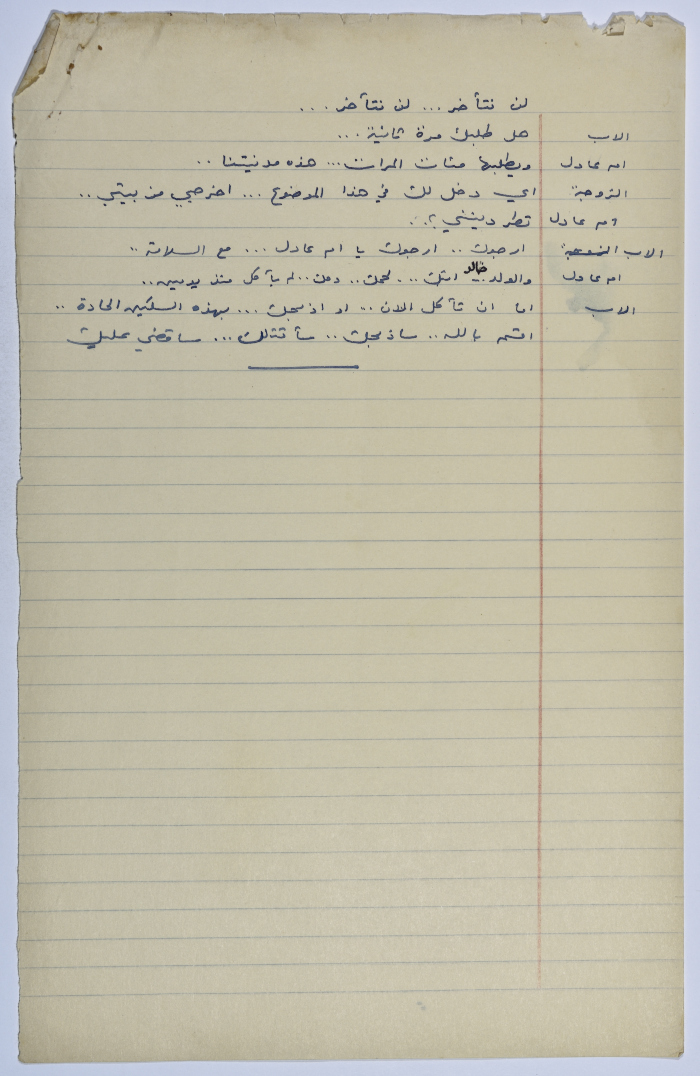 لن نتأخر ... لن نتأخر ...
الاب هل طلبك مرة ثانية ...
ام عادل ويطلبها مئات المرات ... هذه مدنيتنا ..
الزوجة اي دخل لك في هذا الموضوع ... اخرجي من بيتي ..
ام عادل تطردينني ؟ ..
الاب ارجوك .. ارجوك يا ام عادل ... مع السلامة ..
ام عادل والولد .. خالد ابنك ... لحمك .. دمك .. لم يأكل منذ يومين ..
الاب اما ان تأكل الان .. او اذبحك ... بهذه السكين الحادة ..
اقسم بالله .. ساذبحك .. سأقتلك ... ساقضي عليك